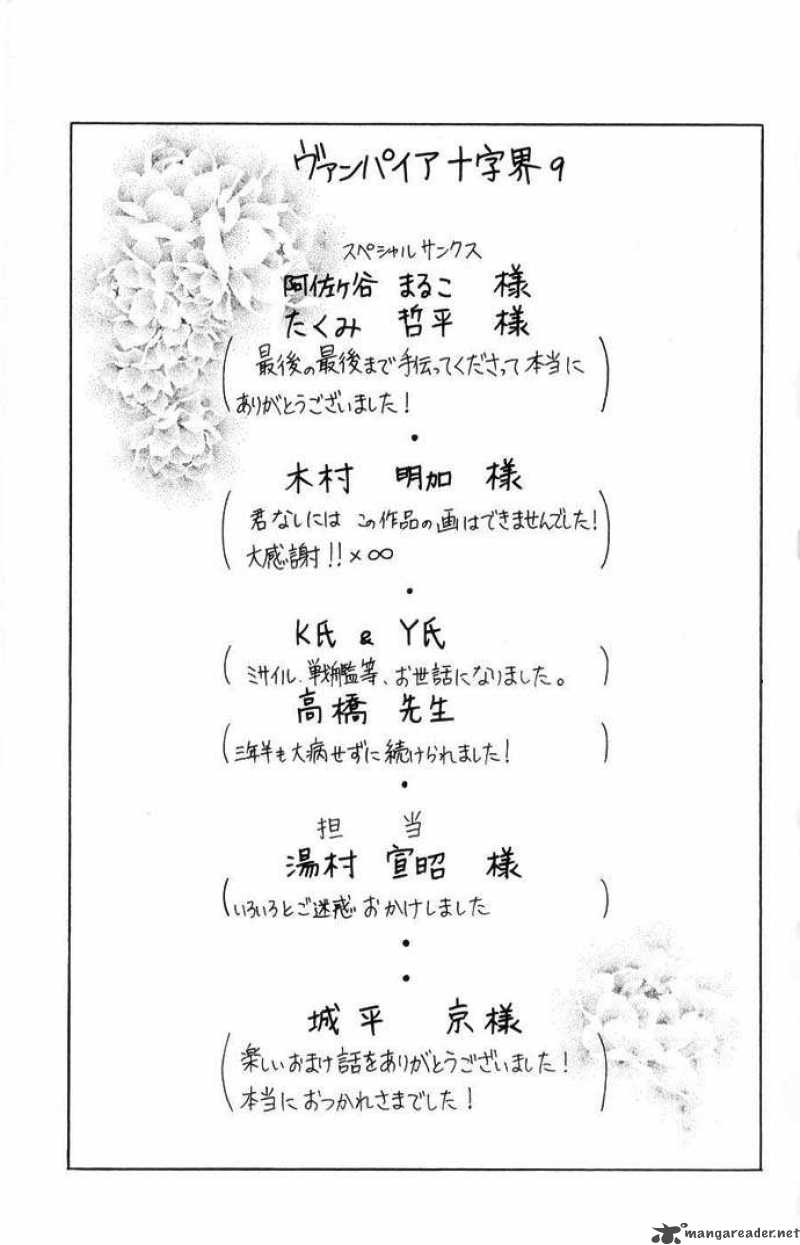 ヴァンパイア十字界9
スペシャルサンクス
阿佐ヶ谷 まるこ 様
たくみ 哲平 様
(最後の最後まで手伝ってくださって本当に
ありがとうございました!)
・
木村 明加 様
(君なしには この作品の画はできませんでした!
大感謝!!×∞)
・
K氏 & Y氏
(ミサイル、戦艦等、お世話になりました。)
高橋 先生
(三年半も大病せずに続けられました!)
・
担 当
湯村 宣昭 様
(いろいろとご迷惑おかけしました)
・
・
城平 京様
(楽しいおまけ話をありがとうございました!
本当におつかれさまでした!)
mangareader.net